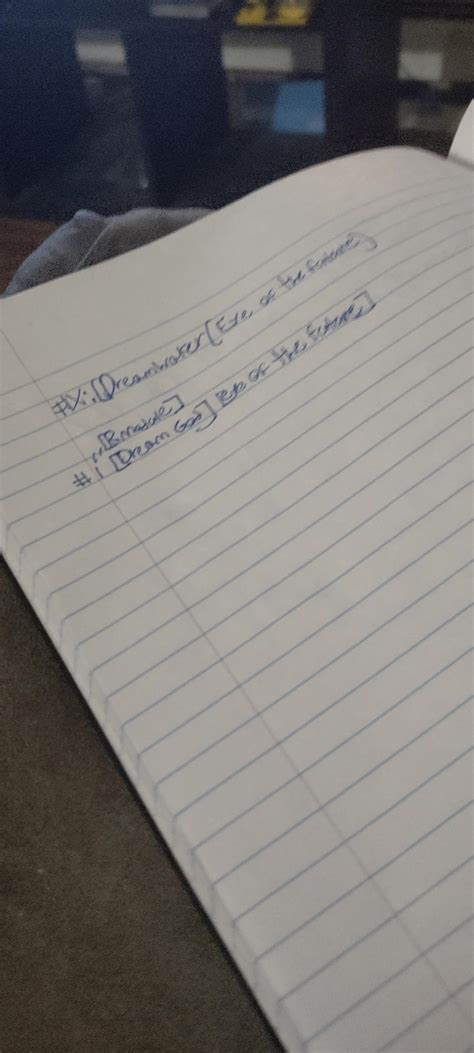 #Xi. [Dreamwaker [Eye of the Future]
[Dream God] Eye of the Future]